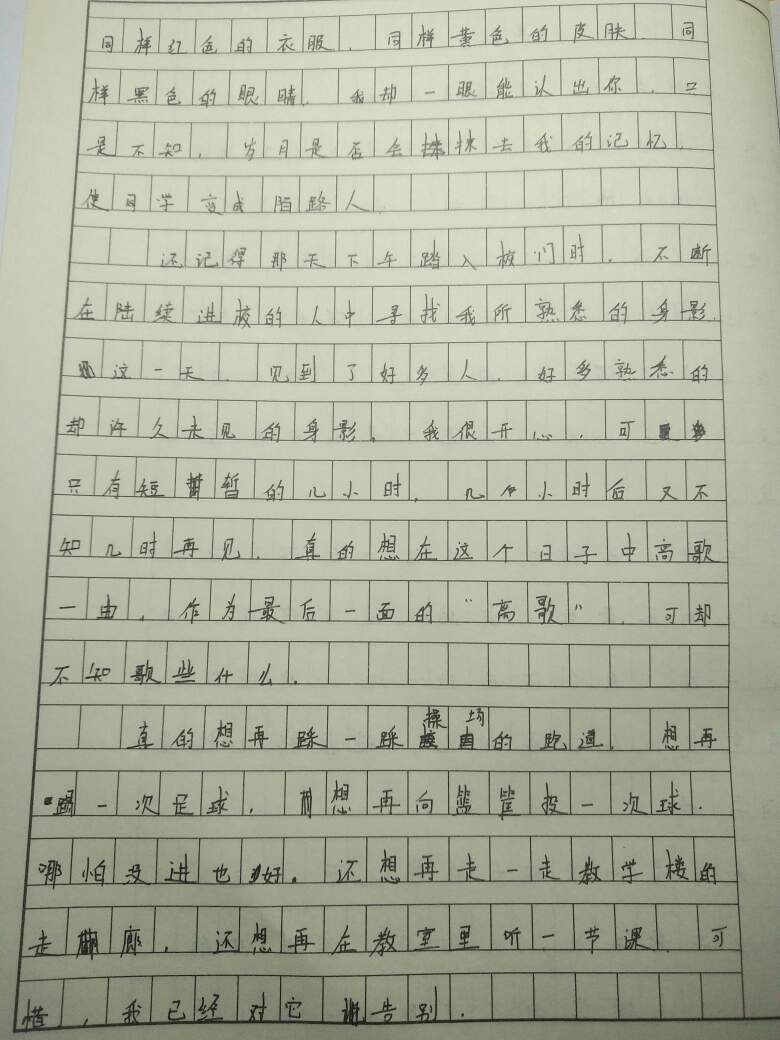 同样红色的衣服，同样黄色的皮肤，同
样黑色的眼睛，我却一眼能认出你，只
是不知，岁月是否会抹去我的记忆，
使同学变成陌路人
还记得那天下午踏入校们时，不断
在陆续进校的人中寻找我所熟悉的身影，
这一天，见到了好多人，好多熟悉的
却许久未见的身影。我很开心，可
只有短暂的几小时，几个小时后又不
知几时再见，真的想在这个日子中高歌
一曲，作为最后一面的“高歌”，可却
不知歌些什么。
真的想再踩一踩操场的跑道，想再
踢一次足球，想再向篮筐投一次球，
哪怕没进也好。还想再走一走教学楼的
走廊，还想再在教室里听一节课，可
惜，我已经对它告别．